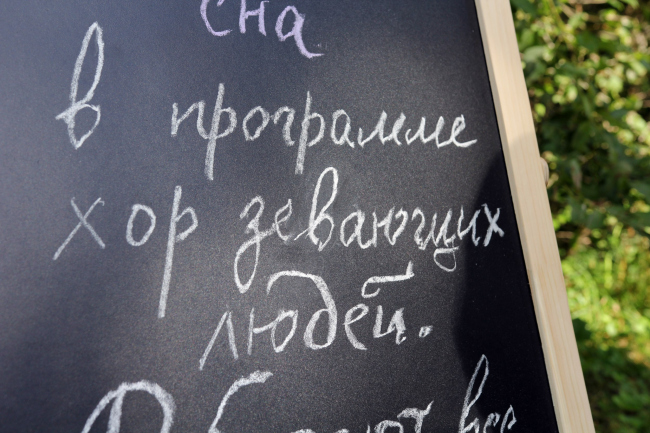 сна
в программе
хор зевающих
людей.